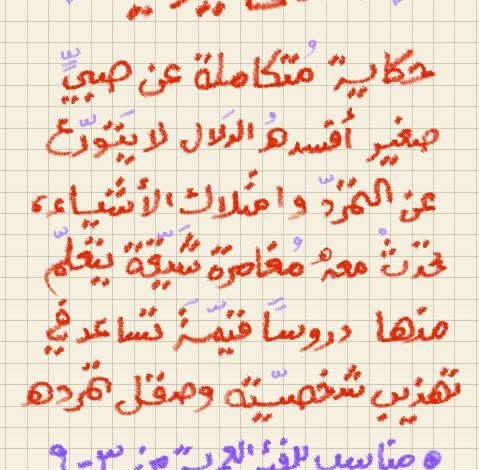 حكاية مُتكاملة عن صبيّ
صغير أفسدهُ الدَلال لا يَتَورّع
عن التمرّد وامتلاك الأشياء،
تحدُث معهُ مُغامرة شَيّقة يتعلّم
منها دروسًا قَيّمة تساعد في
تهذيب شخصيّته وصقل تمرده
مناسب للفئة العمرية من ٣-٩